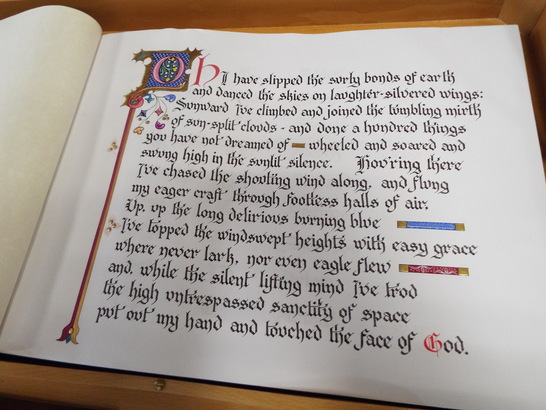 Oh I have slipped the surly bonds of earth
and danced the skies on laughter-silvered wings:
Sunward I've climbed and joined the tumbling mirth
of sun-split clouds - and done a hundred things
you have not dreamed of — wheeled and soared and
swung high in the sunlit silence. Hov'ring there
I've chased the shouting wind along, and flung
my eager craft through footless halls of air.
Up, up the long delirious burning blue
I've topped the windswept heights with easy grace
where never lark, nor even eagle flew
and, while the silent lifting mind I've trod
the high untrespassed sanctity of space
put out my hand and touched the face of God.